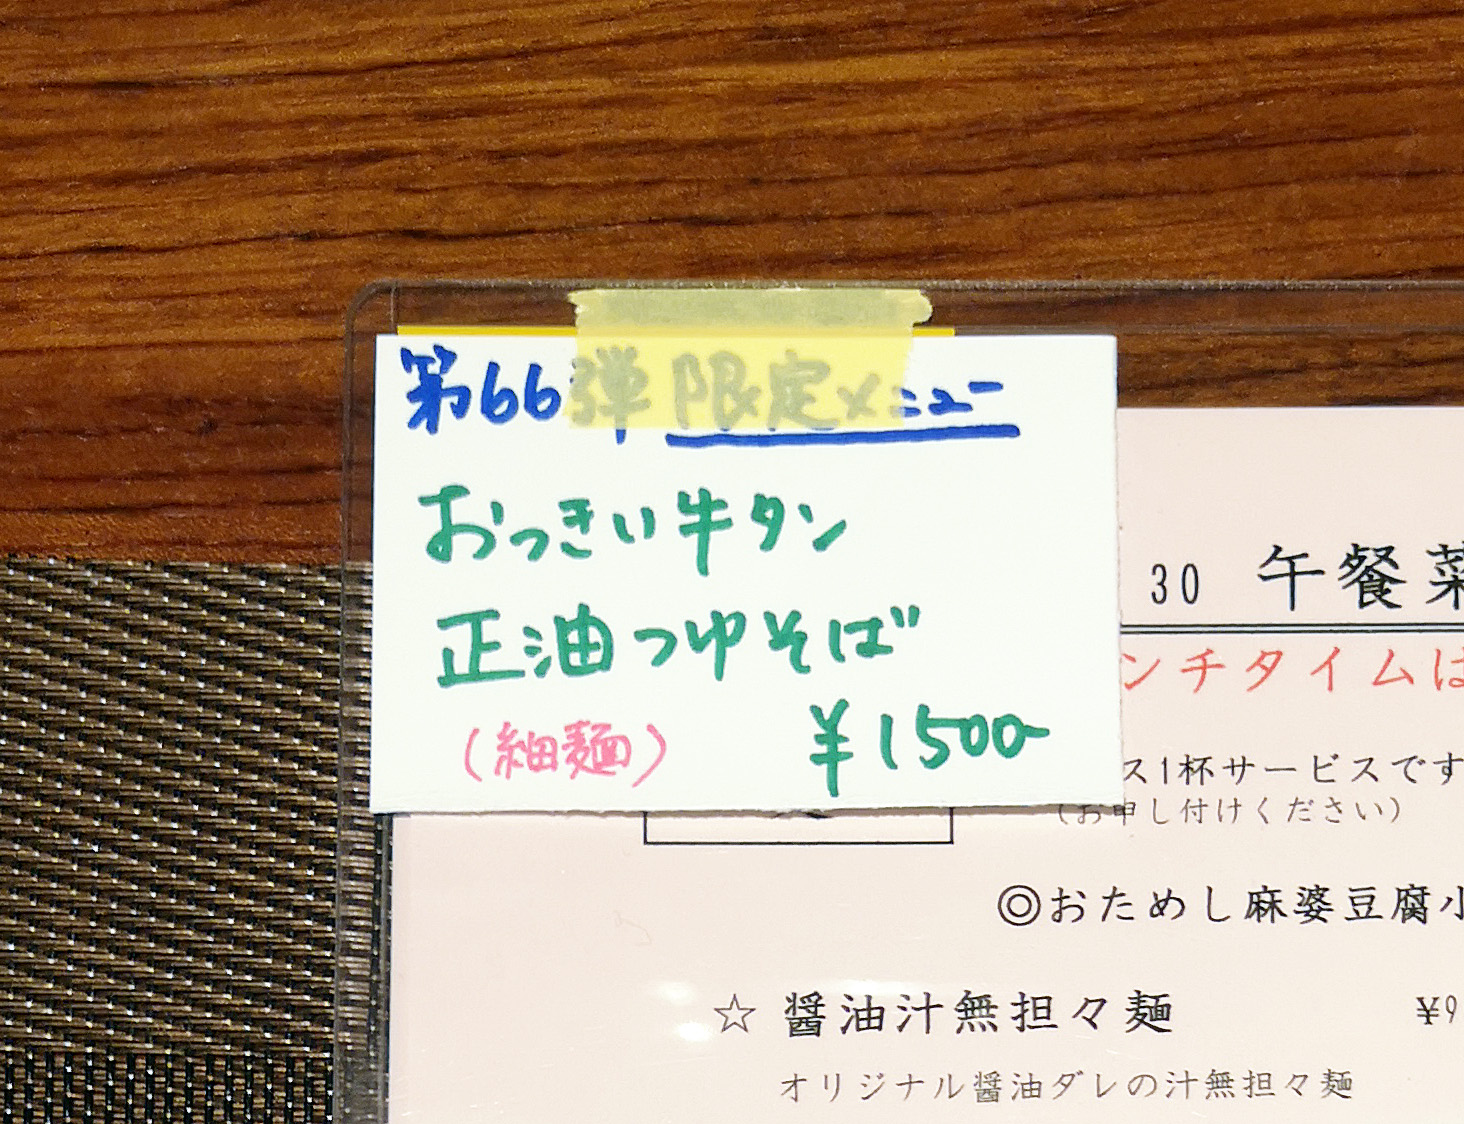 第66弾 限定メニュー
おっきい牛タン
正油つゆそば
(細麺) ¥1500-
30 午餐菜
ンチタイムは
ス1杯サービスです
(お申し付けください)
◎おためし麻婆豆腐小
☆ 醤油汁無担々麺 ¥9
オリジナル醤油ダレの汁無担々麺